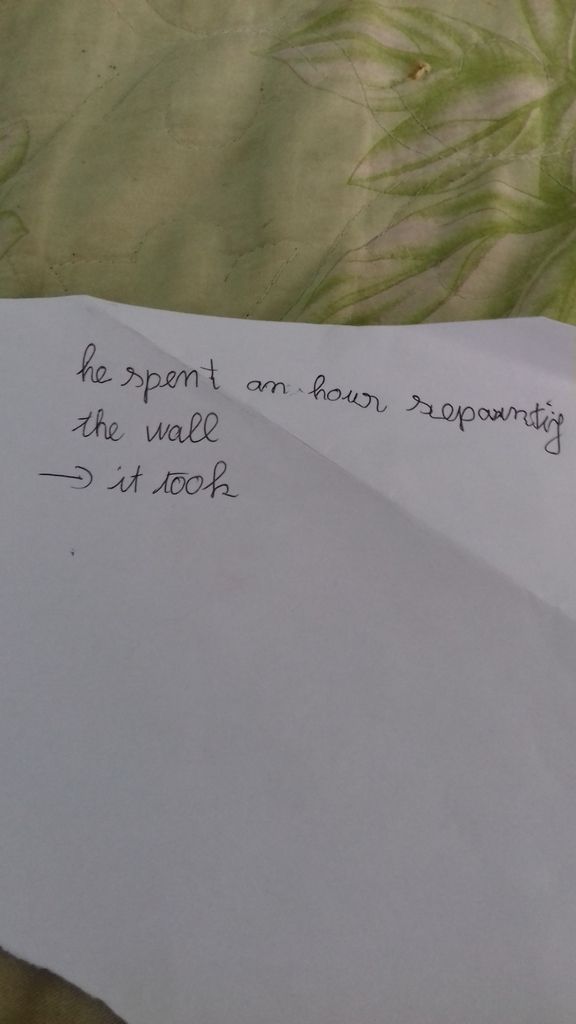 he spent an hour repainting
the wall
→ it took